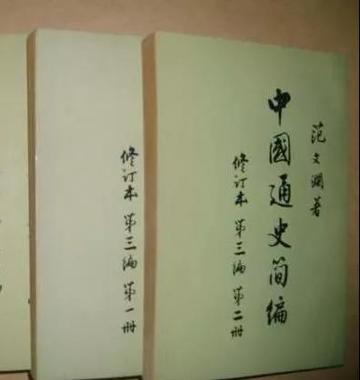 范文瀾著
中國通史简编
修订本 第三编 第二册
修订本 第三编 第一册